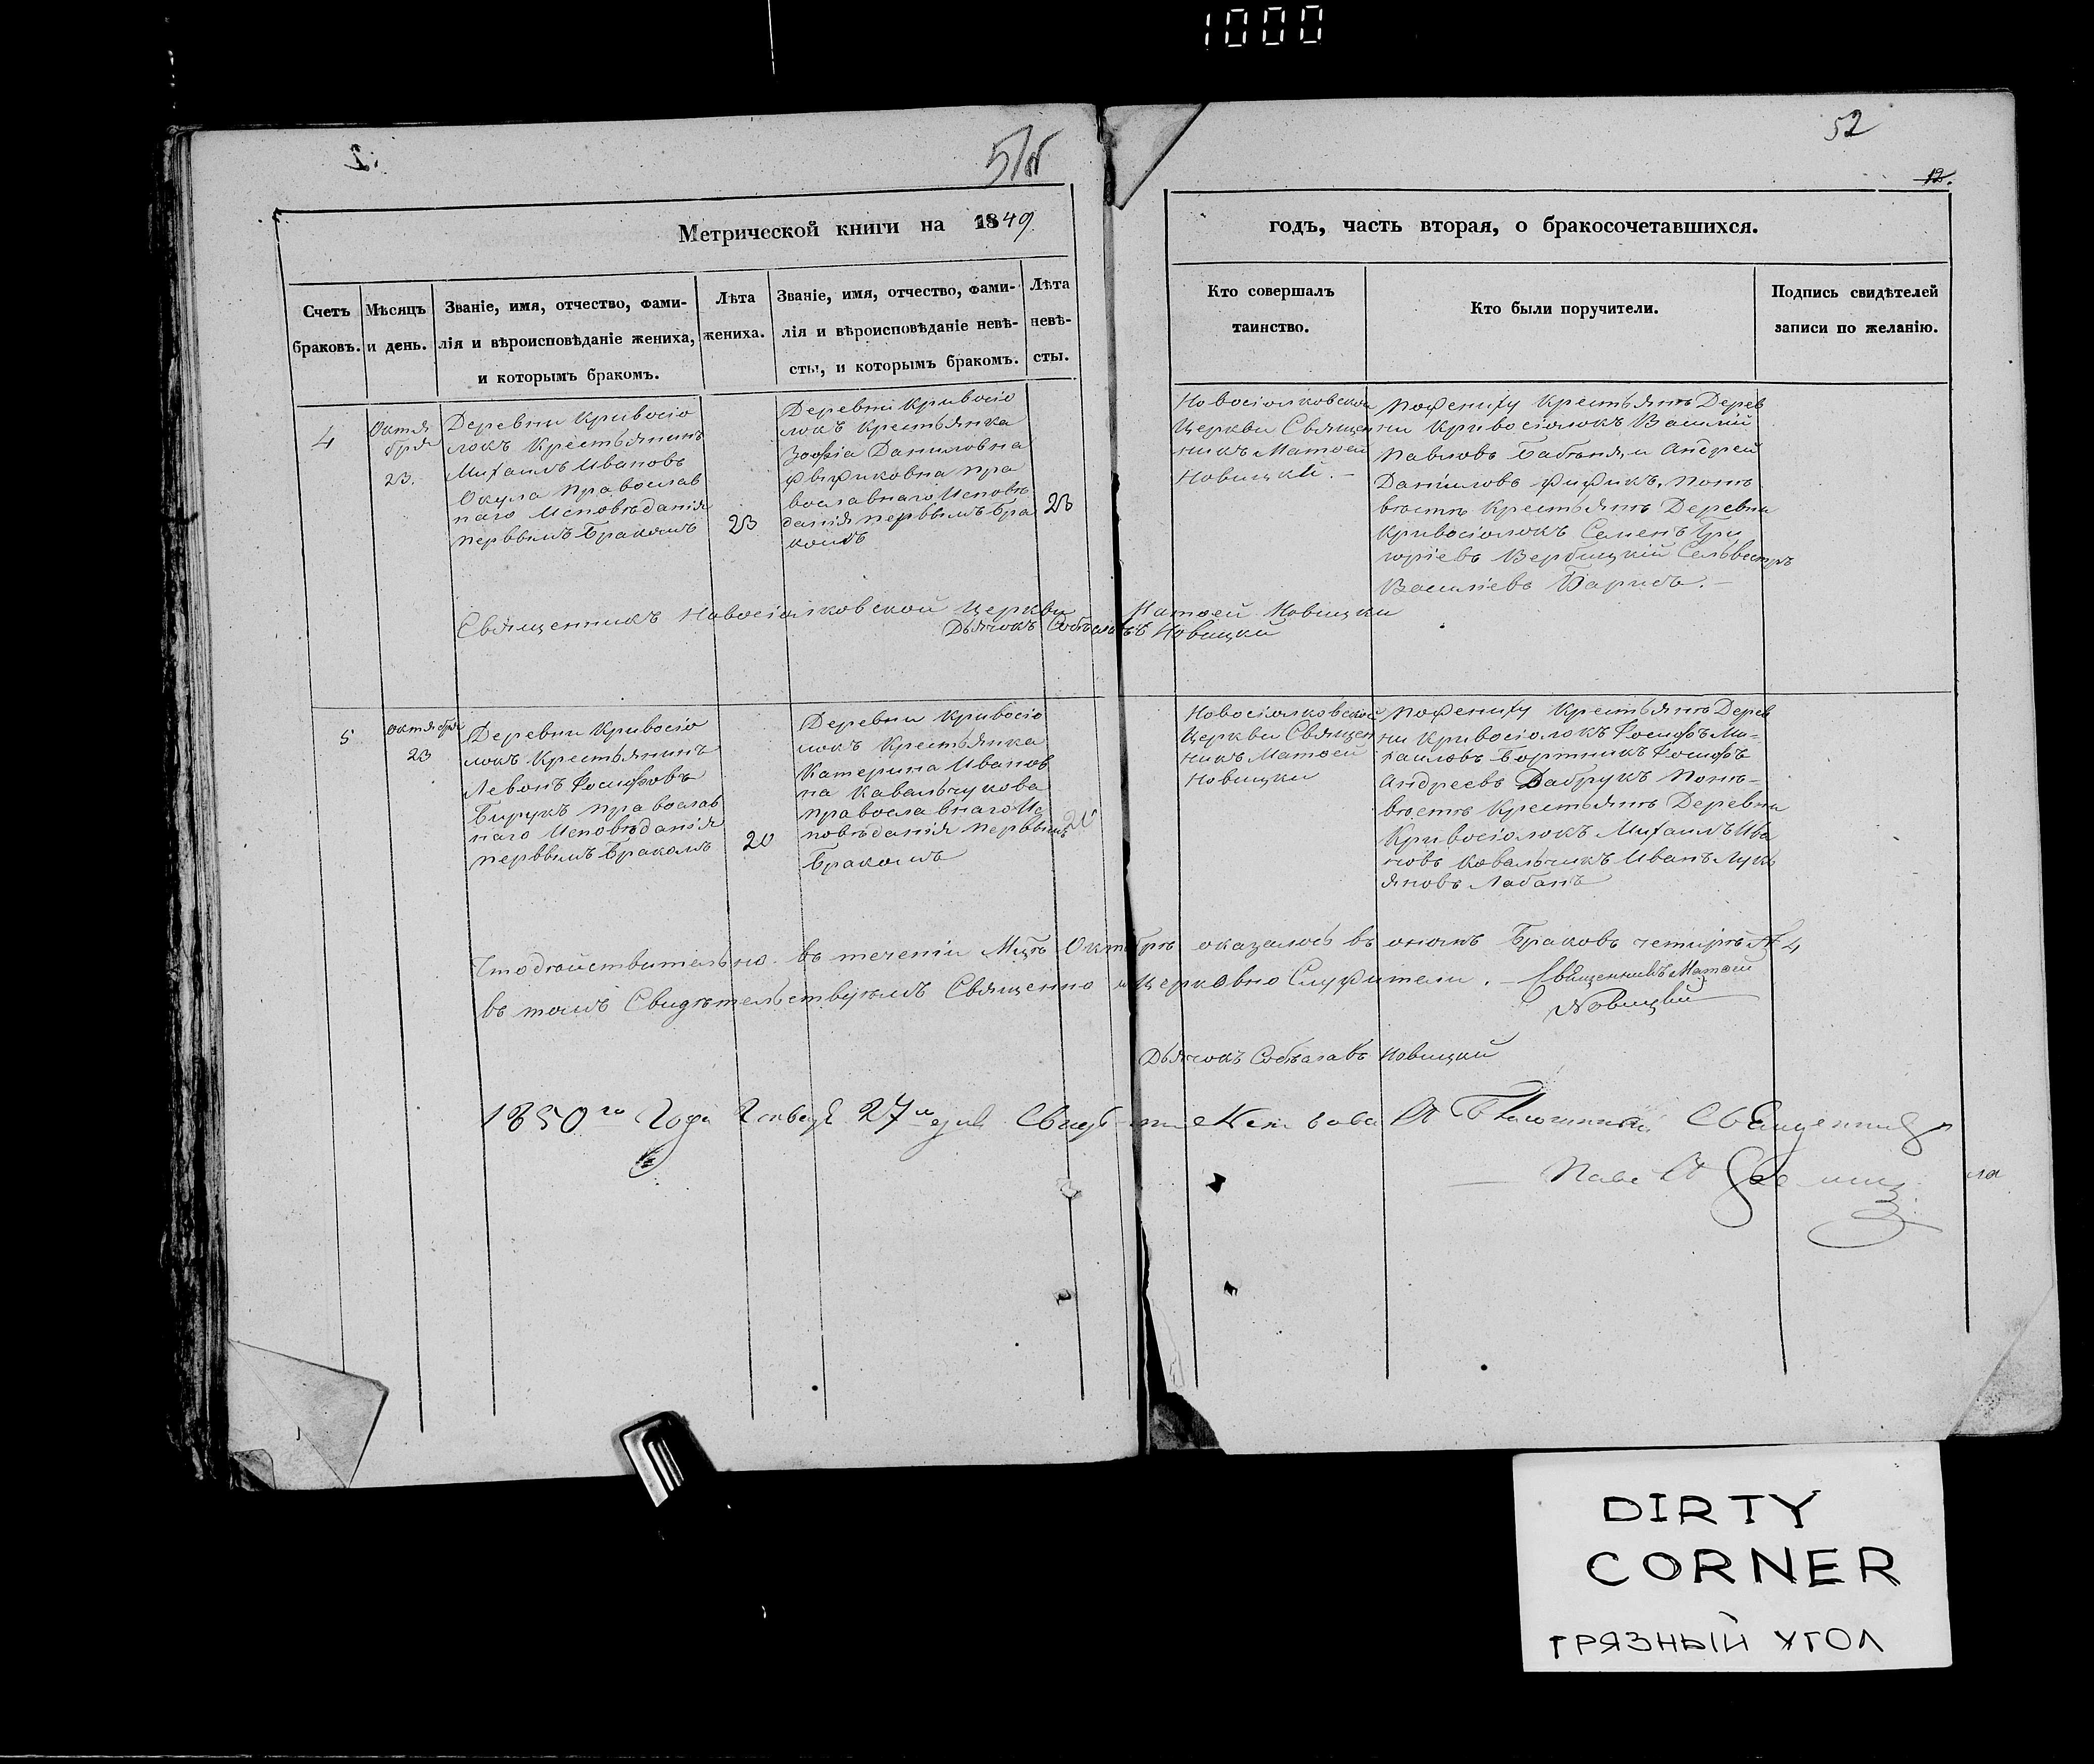 1000
52
12.
Метрической книги на 1849
годъ, часть вторая, о бракосочетавшихся.
Счетъ браковъ.
Мѣсяцъ и день.
Званіе, имя, отчество, фами-
лія и вѣроисповѣданіе жениха,
и которымъ бракомъ.
Лѣта
жениха.
Званіе, имя, отчество, фами-
лія и вѣроисповѣданіе невѣ-
сты, и которымъ бракомъ.
Лѣта
невѣ-
сты.
Кто совершалъ
таинство.
Кто были поручители.
Подпись свидѣтелей
записи по желанію.
4
Октя
бря
23.
Деревни Кривосіо
локъ Крестьянинъ
Михаилъ Ивановъ
Окула Православ
наго Исповѣданія
первымъ Бракомъ
23
Деревни Кривосіо
локъ Крестьянка
Зофіа Даниловна
пра
вославнаго Исповѣ
данія первымъ бра
комъ
23
Новосіолковской
Церкви Священ
никъ Матѳей
Новицкій.
Пожениху Крестьянѣ Дерев
ни Кривосіолокъ Василій
Павловъ и Андрей
Даниловъ Понѣ
вѣстѣ Крестьянѣ Деревни
Кривосіолокъ Семенъ Гри
горіевъ Вербицкій Сельвестръ
Василіевъ
Священникъ Новосіолковской Церкви Матѳей Новицки
Дьячокъ Новицки
5
Октября
23
Деревни Кривосіо
локъ Крестьянинъ
Левонъ Іосифовъ
Бирукъ православ
наго Исповѣданія
первымъ Бракомъ
20
Деревни Кривосіо
локъ Крестьянка
Катерина Иванов
на Кавальчукова
православнаго Ис
повѣданія первымъ
Бракомъ
20
Новосіолковской
Церкви Священ
никъ Матѳей
Новицки
Пожениху Крестьянѣ Дерев
ни Кривосіолокъ Іосифъ Ми-
хаиловъ Бортникъ Іосифъ
Андреевъ Дабрукъ Понѣ-
вѣстѣ Крестьянѣ Деревни
Кривосіолокъ Михаилъ Ива
новъ Ковальчикъ Иванъ Лукь
яновъ Лабанъ
Что дѣйствительно въ теченіи Мцѣ Октябрѣ оказалось въ ономъ Браковъ четирѣ № 4
въ томъ Свидѣтельствуемъ Священно и Церковно Служители. Священникъ Матѳей
Новицкій
Дьячокъ Новицки
1850го Года 27го дня Священникъ
DIRTY
CORNER
ГРЯЗНЫЙ УГОЛ